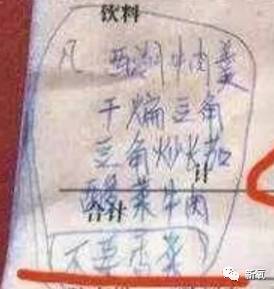 饮料
凡 西湖牛肉羹
干煸豆角
豆角炒长茄
计
酸菜牛肉
合计
不要香菜
新氧